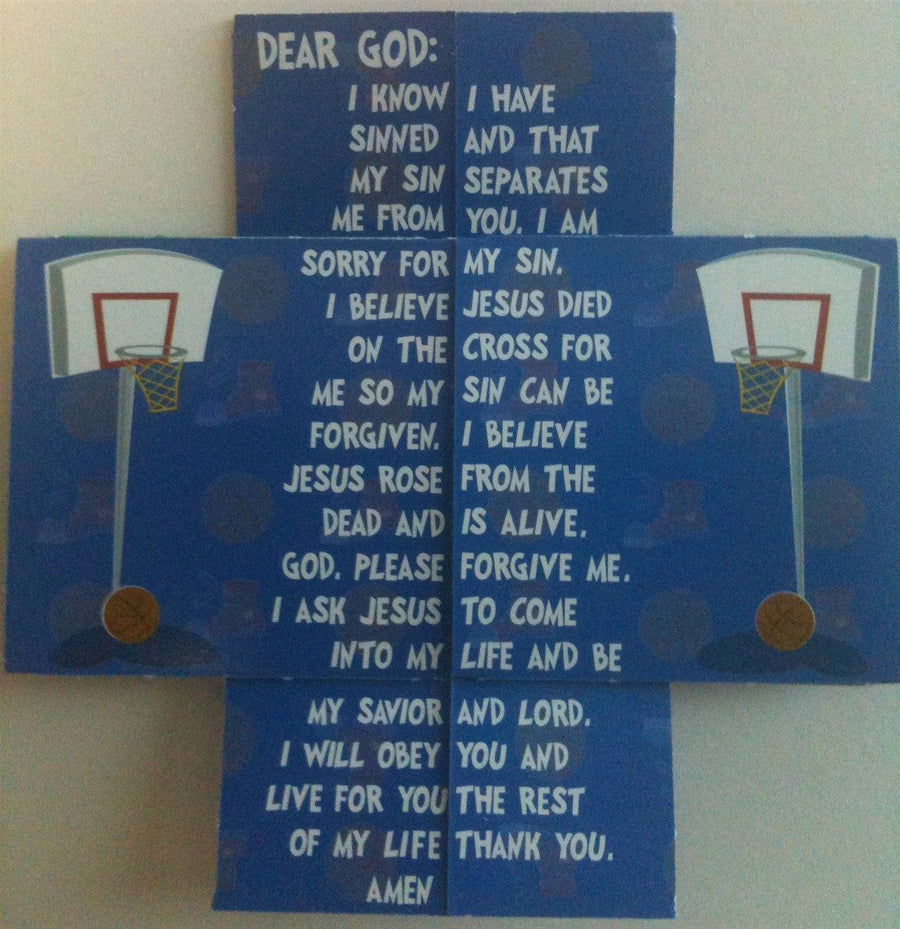 DEAR GOD:
I KNOW I HAVE
SINNED AND THAT
MY SIN SEPARATES
ME FROM YOU. I AM
SORRY FOR MY SIN.
I BELIEVE JESUS DIED
ON THE CROSS FOR
ME SO MY SIN CAN BE
FORGIVEN. I BELIEVE
JESUS ROSE FROM THE
DEAD AND IS ALIVE.
GOD. PLEASE FORGIVE ME.
I ASK JESUS TO COME
INTO MY LIFE AND BE
MY SAVIOR AND LORD.
I WILL OBEY YOU AND
LIVE FOR YOU THE REST
OF MY LIFE THANK YOU.
AMEN